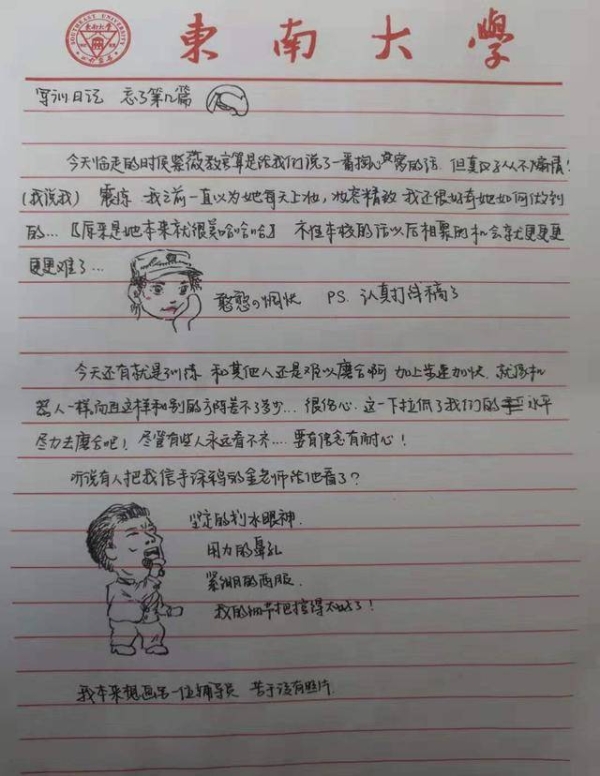 東南大學
SOUTHEAST UNIVERSITY
军训日记 忘了第几篇
今天临走的时候紫薇教官算是给我们说了一番掏心窝的话. 但真的人不可貌相!
(我说我) 震惊 我之前一直以为她每天上妆, 妆容精致 我还很好奇她如何做到
的...『原来是她本来就很美哈哈哈』 不住本校的话以后相聚的机会就更更更
更更难了...
憨憨の惆怅 PS. 认真打草稿了
今天还有就是训练 和其他人还是难以磨合啊 加上步速加快. 就像机
器人一样 而且这样和别的方阵差不了多少... 很伤心. 这一下拉低了我们的水平
尽力去磨合吧! 尽管有些人永远看不齐.... 要有信念有耐心!
听说有人把我信手涂鸦的金老师给他看了?
坚定的 眼神.
用力的鼻孔
紧绷的西服.
我的细节把控得太好了!
我本来想画另一位辅导员 苦于没有照片.